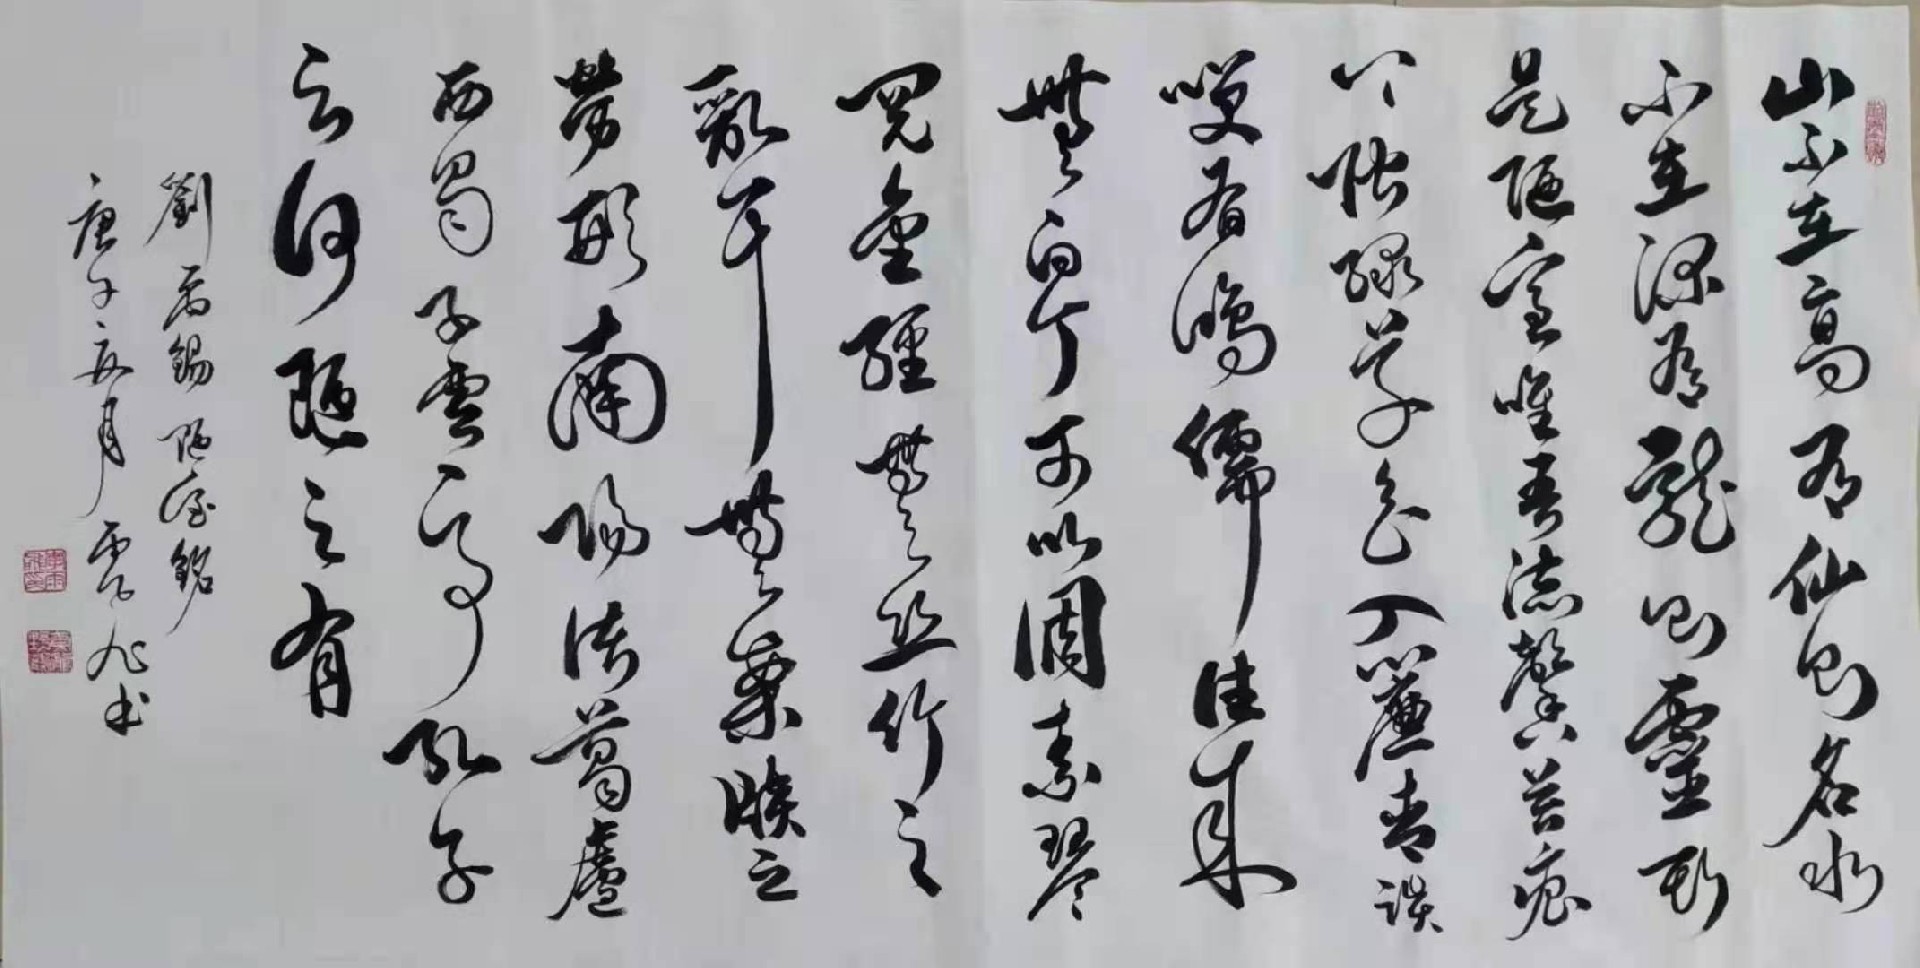 山不在高有仙則名水
不在深有龍則靈斯
是陋室唯吾德馨苔痕
上階綠草色入簾青談
笑有鴻儒往來
無白丁可以調素琴
閱金經無絲竹之
亂耳無案牘之
勞形南陽諸葛廬
西蜀子雲亭孔子
云何陋之有
劉禹錫陋室銘
庚子夏月 旭书